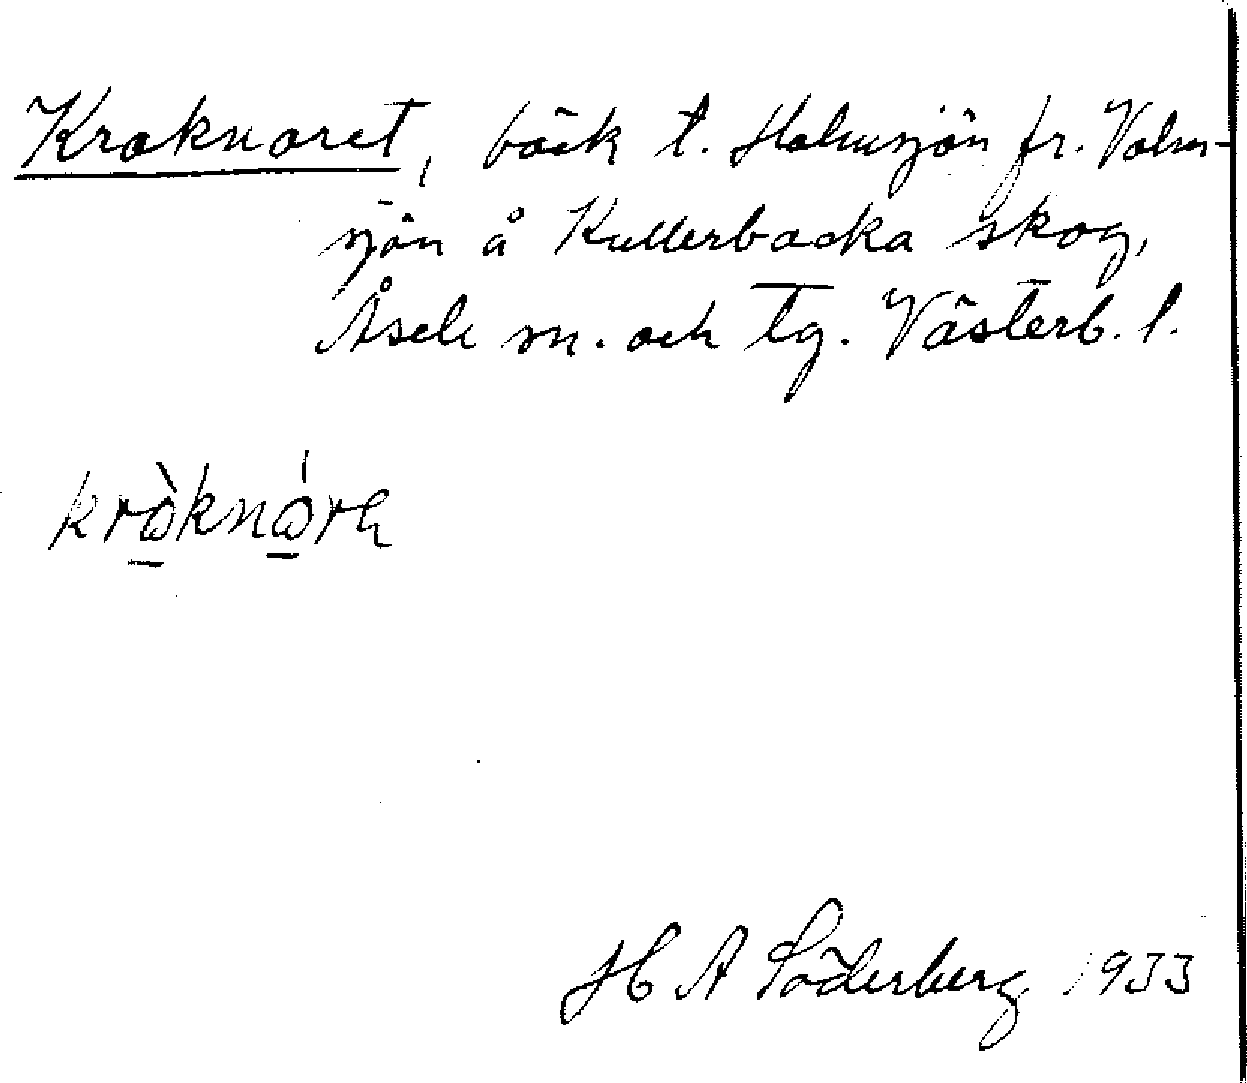 Kroknoret, bäck t. Holmsjön fr. Volm-
sjön å Kullerbacka skog,
Åsele sn. och tg. Västerb. l.
H A Söderberg 1933